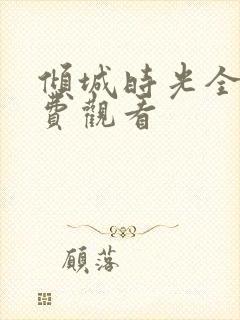 傾城時光全
費觀看
顧落